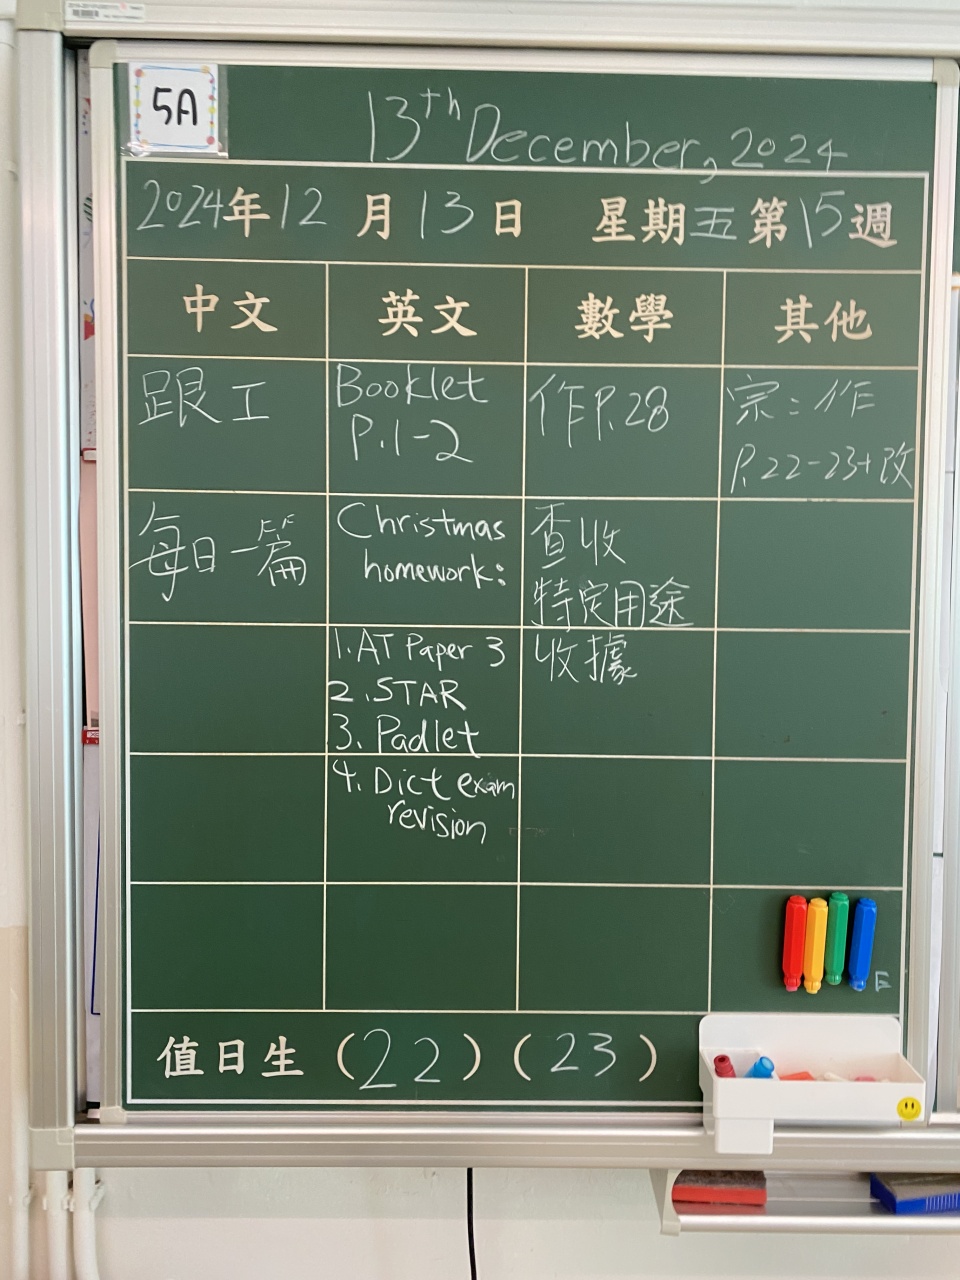 5A
13th December, 2024
2024年12月13日 星期五第15週
中文 英文 數學 其他
跟工
每日一篇
Booklet
P.1-2
Christmas
homework:
1. AT Paper 3
2. STAR
3. Padlet
4. Dict exam
revision
作P.28
查收
特定用途
收據
宗:作
P.22-23+改
E
值日生 (22)(23)